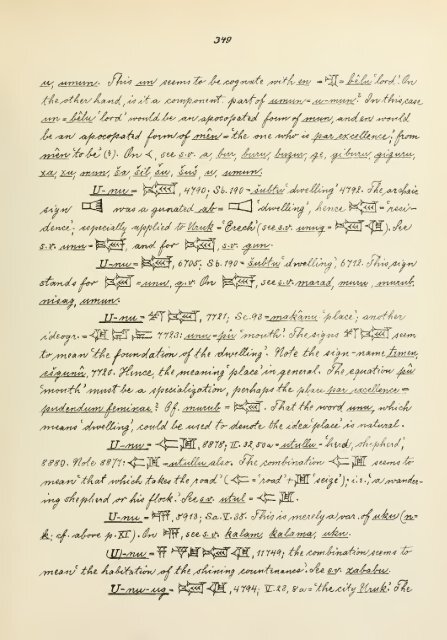 349
u, umum. This un seems to be cognate with en = 𒂗 = bêlu 'lord.' On
the other hand, is it a component part of umun = u-mun? In this case
un = bêlu 'lord' would be an apocopated form of mun, and en would
be an apocopated form of mên = 'the one who is par excellence,' from
mên 'to be' (?). On 𒌋, see s.v. a, bur, buru, buzur, ge, giburu, giguru,
xa, xu, man, ša, šil, šu, šuš, u, umun.
U-nu = 4790; Sb. 190 = šubtu 'dwelling' 4792. The archaic
sign was a gunated ab = 'dwelling', hence = 'resi-
dence', especially applied to Uruk = 'Erech' (see s.v. unug = ). See
s.v. unu = and for s.v. gun.
U-nu = 6705; Sb. 190 = šubtu 'dwelling', 6712. This sign
stands for = unu, q.v. On see s.v. marad, muru, murub,
nisag, umun.
U-nu = 7721; Sc. 93 = makânu 'place'; another
ideogr. = 7723: unu = pû 'mouth.' The signs seem
to mean 'the foundation of the dwelling.' Note the sign-name Temen,
7720. Hence, the meaning 'place' in general. The equation pû
'mouth' must be a specialization, perhaps the place par excellence =
pudendum feminae? Cf. murub = . That the word unu, which
means 'dwelling', could be used to denote the idea 'place' is natural.
U-nu = 8878; II. 32, 50a = utullu = 'herd, shepherd',
8880. Note 8877: = utullu also. The combination seems to
mean 'that which takes the road' ( = 'road' + 'seize'); i.e., a wander-
ing shepherd or his flock. See s.v. utul = .
U-nu = 8913; Sa. V. 38. This is merely a var. of uku (n-
k; cf. above p. XI). On see s.v. kalam, kalama, uku.
(U)-nu = 11749; the combination seems to
mean 'the habitation of the shining countenance.' See s.v. zababu.
U-nu-ug = 4794; V. 22, 8a = 'the city Uruk.' The